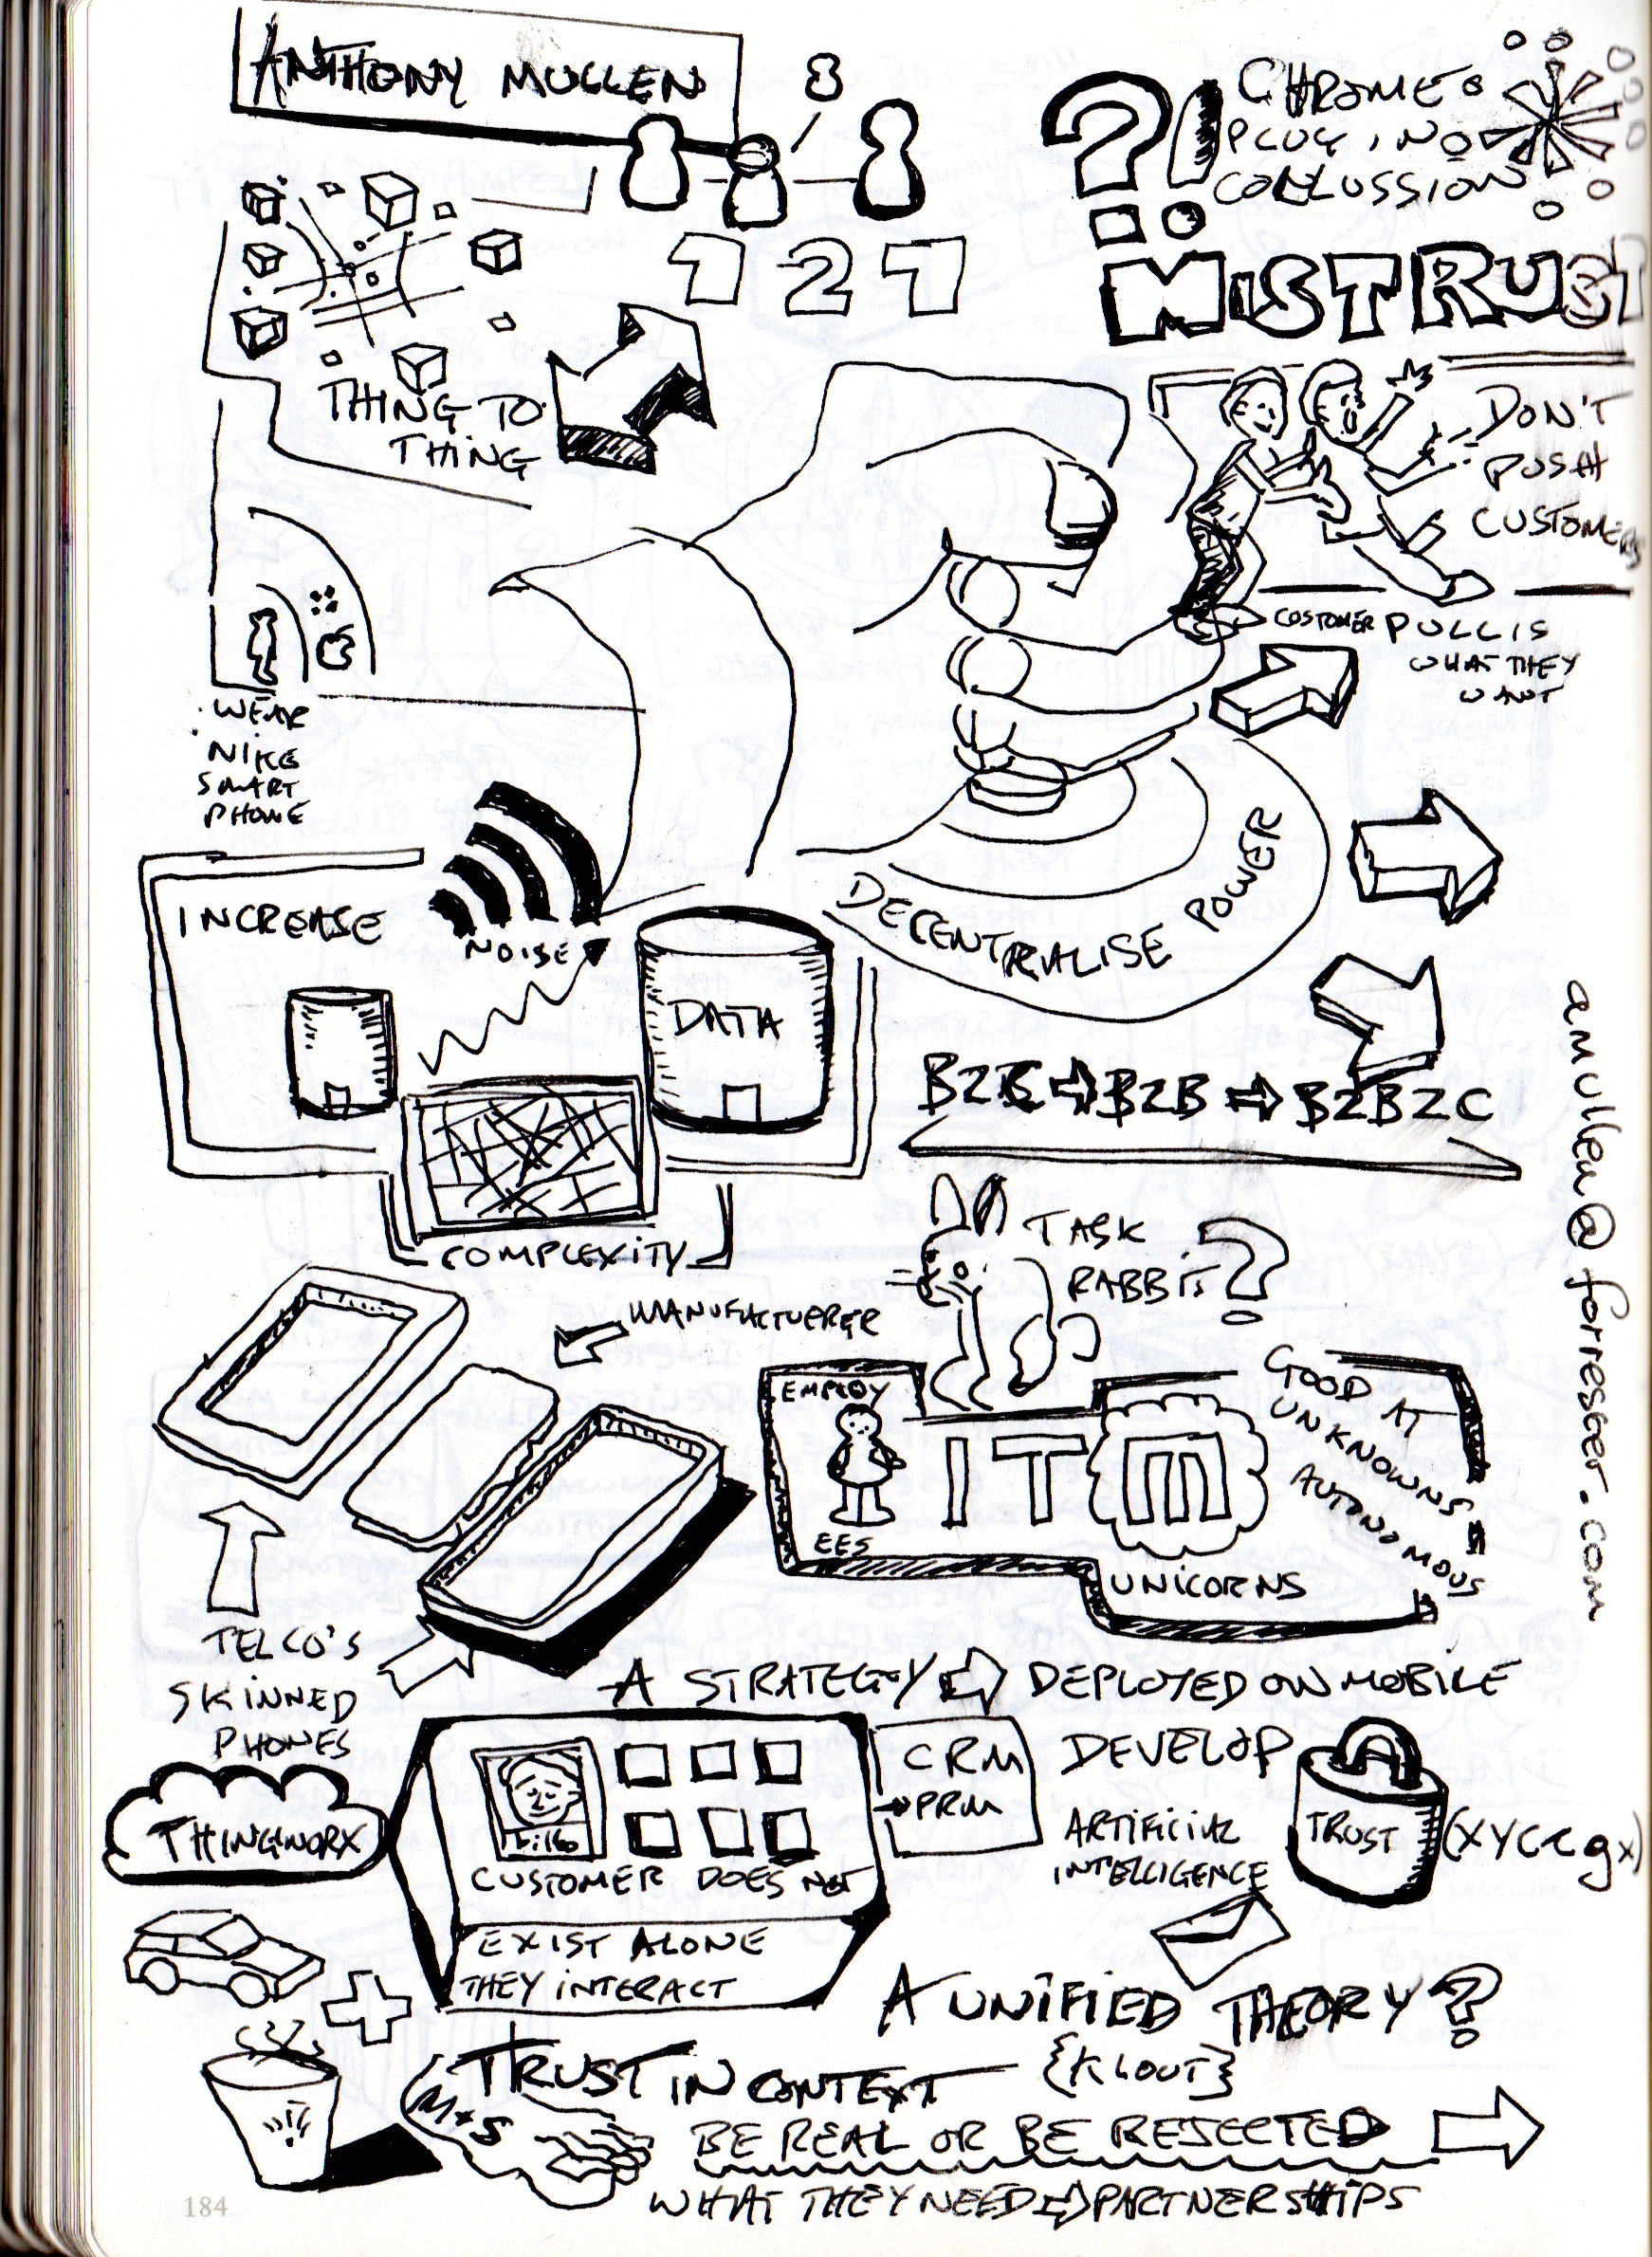 ANTHONY MULLEN
121
THING TO
THING
?!
CHROME
PLUG IN
COLLUSSION
MISTRUST
DON'T
PUSH
CUSTOMERS
COSTOMER PULL IS
WHAT THEY
WANT
WEAR
NIKE
SMART
PHONE
INCREASE
NOISE
DATA
COMPLEXITY
DECENTRALISE POWER
B2C B2B B2B2C
amullen@forrester.com
TASK
RABBIT?
MANUFACTUERER
EMPLOY
EES
IT M
UNICORNS
GOOD AT
UNKNOWNS
AUTONOMOUS
TELCO'S
SKINNED
PHONES
A STRATEGY DEPLOYED ON MOBILE
THINGWORX
CUSTOMER DOES NOT
EXIST ALONE
THEY INTERACT
CRM
PRM
DEVELOP
ARTIFICIAL
INTELLIGENCE
TRUST
A UNIFIED THEORY?
{KLOUT}
TRUST IN CONTEXT
M+S
BE REAL OR BE REJECTED
WHAT THEY NEED PARTNERSHIPS
184